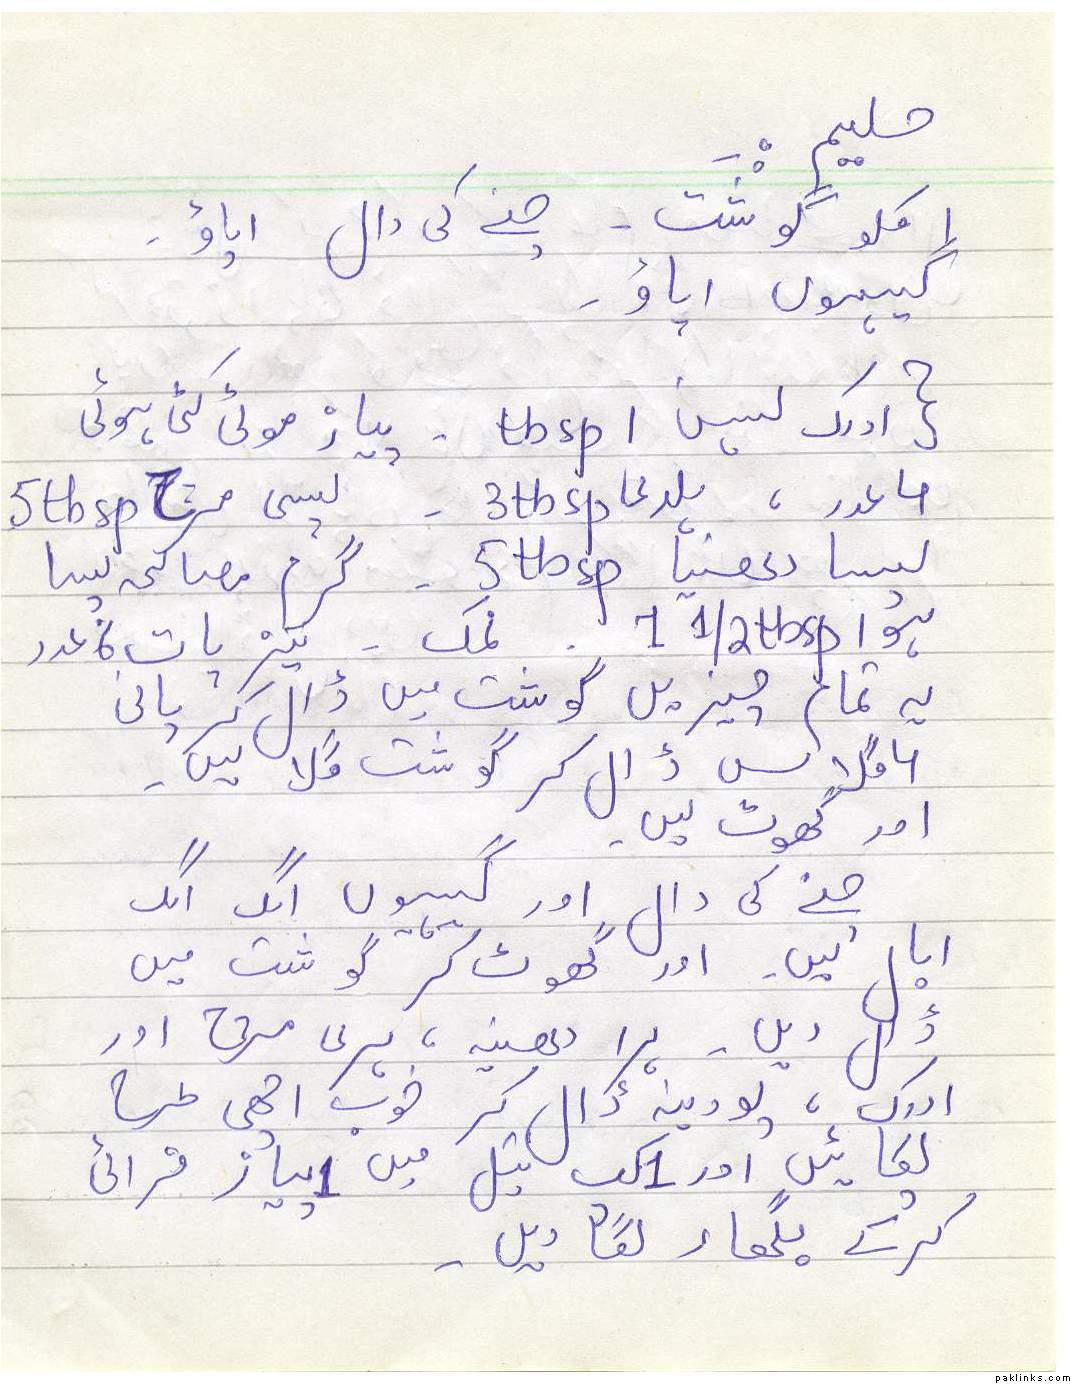 حلیم
۱ کلو گوشت ۔ چنے کی دال ۱ پاؤ ۔
گیہوں ۱ پاؤ ۔
{ ادرک لہسن 1 tbsp ۔ پیاز موٹی کٹی ہوئی
۴ عدد ، ہلدی 3tbsp ۔ پسی مرچ 5tbsp
پسا دھنیا 5tbsp ۔ گرم مصالحہ پسا
ہوا 1 1/2tbsp . نمک ۔ تیز پات ۶ عدد
یہ تمام چیزیں گوشت میں ڈال کر پانی
۴ گلاس ڈال کر گوشت گلا لیں ۔
اور گھوٹ لیں ۔
چنے کی دال اور گیہوں الگ الگ
ابال لیں ۔ اور گھوٹ کر گوشت میں
ڈال دیں ۔ ہرا دھنیہ ، ہری مرچ اور
ادرک ، پودینہ ڈال کر خوب اچھی طرح
پکائیں اور 1 کپ تیل میں 1 پیاز فرائی
کرکے بگھار لگا دیں ۔
paklinks.com